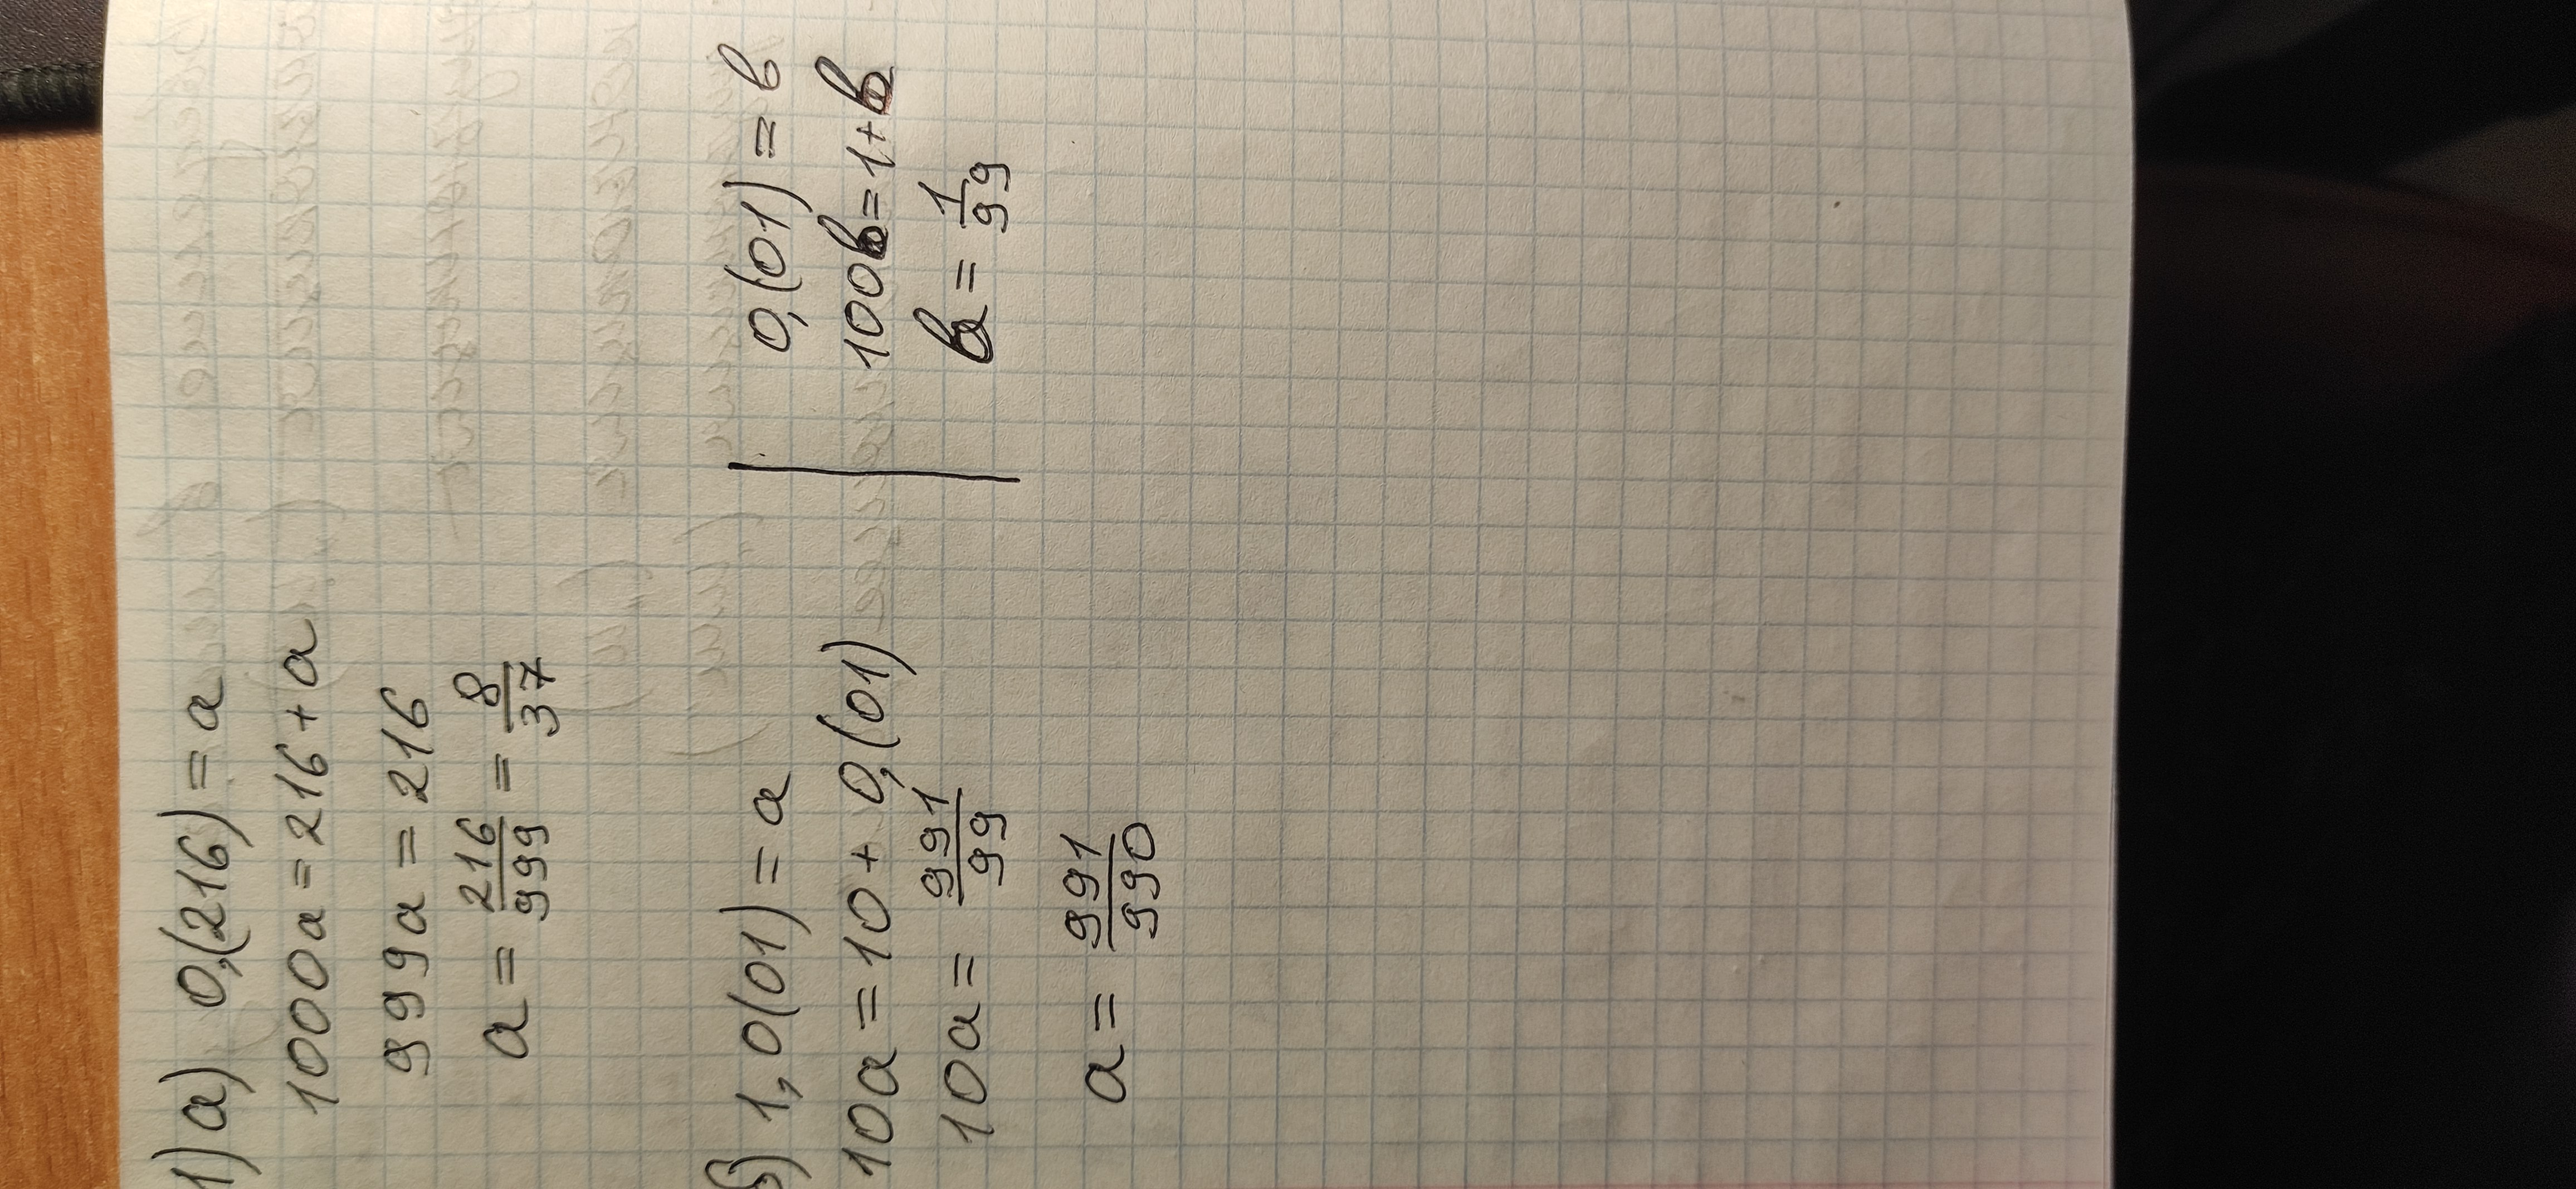 1) а) 0,(216) = a
1000a = 216 + a
999a = 216
a = 216/999 = 8/37
б) 1,0(01) = a
10a = 10 + 0,(01)
10a = 991/99
a = 991/990
0,(01) = b
100b = 1 + b
b = 1/99